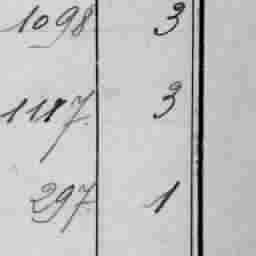 1098 3
1117. 3
297. 1